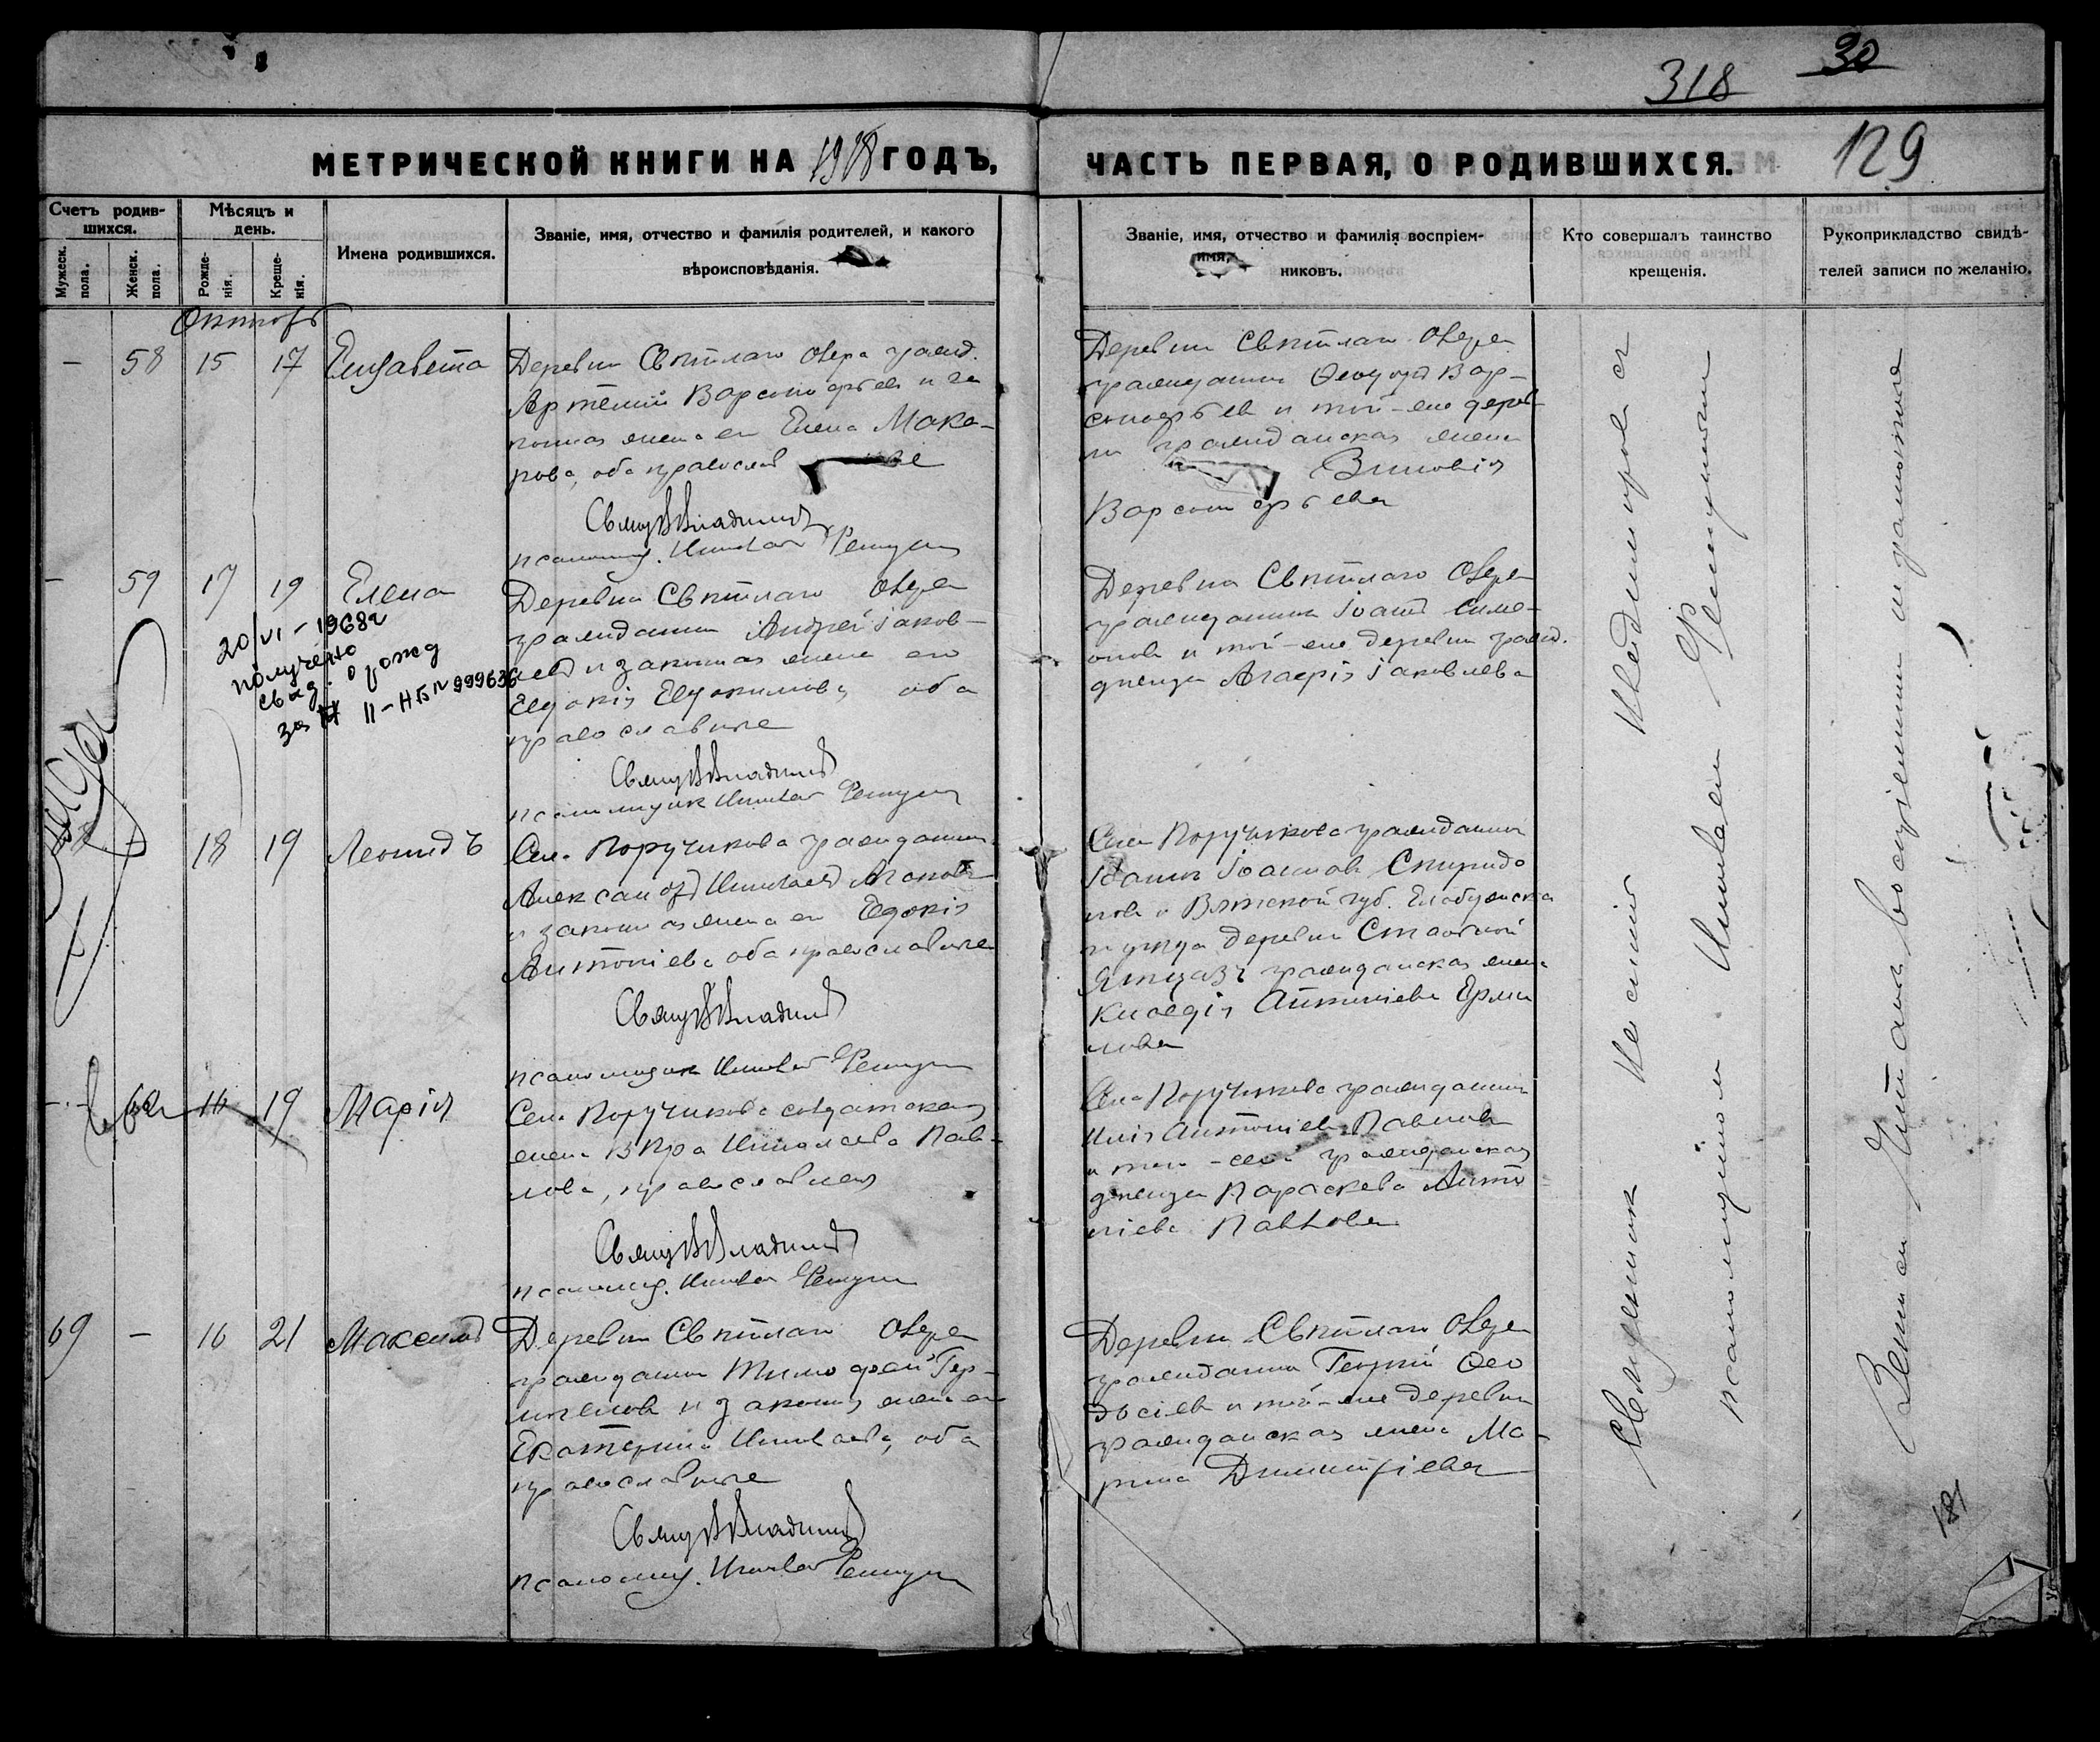 318 30
129
МЕТРИЧЕСКОЙ КНИГИ НА 1918 ГОДЪ,
ЧАСТЬ ПЕРВАЯ, О РОДИВШИХСЯ.
Счетъ родив-
шихся.
Мужеск. пола.
Женск. пола.
Мѣсяцъ и
день.
Рожде-
нія.
Креще-
нія.
Имена родившихся.
Званіе, имя, отчество и фамилія родителей, и какого
вѣроисповѣданія.
Званіе, имя, отчество и фамилія воспріем-
никовъ.
Кто совершалъ таинство
крещенія.
Рукоприкладство свидѣ-
телей записи по желанію.
Октябрь
– 58 15 17 Елизавета
Деревни Свѣтлаго Озера гражд.
Артемій Варсонофьев и за-
конная жена ег Елена Мака-
рова, оба православ
Свящ. Владимиров
псаломщ. Николай
Деревни Свѣтлаго Озера
гражданин Ѳеодор Вар-
сонофьев и той-же дерев-
ни гражданская жена
Зиновія
Варсонофьева
– 59 17 19 Елена
20/VI-1968г
получено
свид. о рожд
за № II-НБ № 999636
Деревни Свѣтлаго Озера
гражданин Андрей Іаков-
лев и законная жена его
Евдокія Евдокимова, оба
православные
Свящ. Владимиров
псаломщик Николай
Деревни Свѣтлаго Озера
гражданин Іоанн Симе-
онов и той-же деревни гражд.
дѣвица Агафія Іаковлева
18 19 Леонидъ
Села Поручикова гражданин
Александр Николаев Агапов
и законная жена ег Евдокія
Антоніева оба православные
Свящ. Владимиров
псаломщик Николай
Села Поручикова гражданин
Іоанн Іоаннов Спиридо
нов и Вятской губ. Елабужска
го уѣзда деревни
гражданская жена
Клавдія Антоніева Ерми
лова
60 16 19 Марія
Села Поручикова солдатская
жена Вѣра Николаева Пав-
лова, православная
Свящ. Владимиров
псаломщ. Николай
Села Поручикова гражданин
Антоніев Павлов
и того-села гражданская
дѣвица Параскева Анто
ніева Павлова
69 – 16 21 Максимъ
Деревни Свѣтлаго Озера
гражданин Тимофей Гер-
могенов и законная жена ег
Екатерина Николаева, оба
православные
Свящ. Владимиров
псаломщ. Николай
Деревни Свѣтлаго Озера
гражданин Георгій Ѳео
досіев и той-же деревни
гражданская жена Ма-
рина Димитріева
Священник Владимиров с
псаломщиком Николаем
181